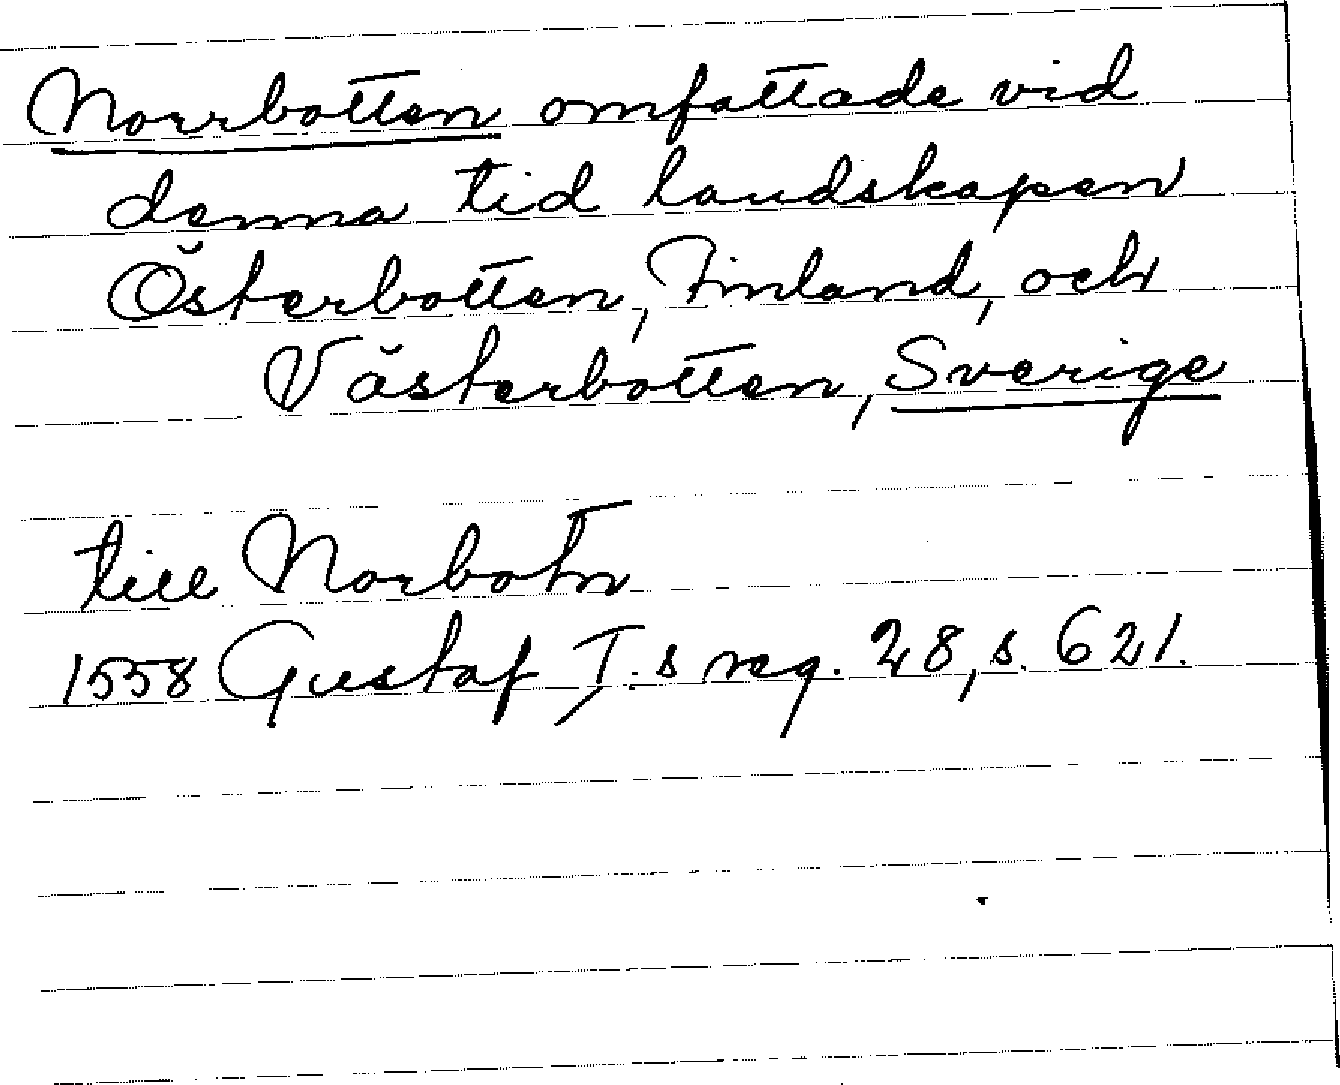 Norrbotten omfattade vid
denna tid landskapen
Österbotten, Finland, och
Västerbotten, Sverige
till Norbotn
1558 Gustaf I.s reg. 28, s. 621.